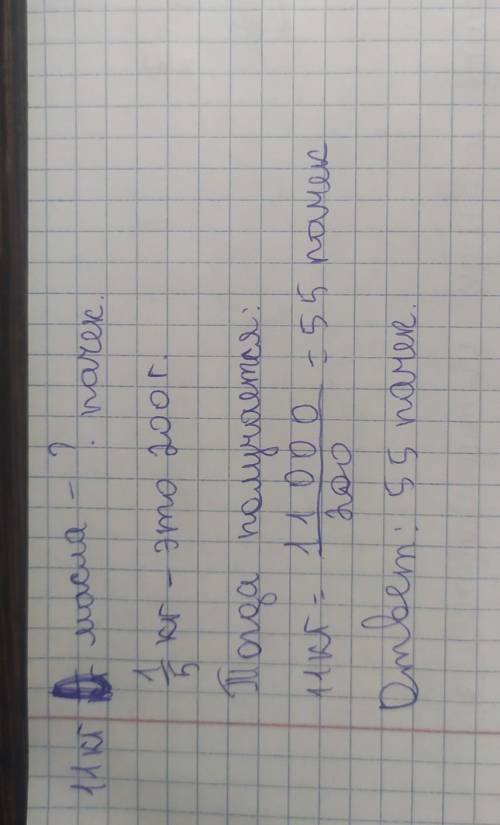 11 кг масла - ? пачек.
1/5 кг - это 200 г.
Тогда получается:
11кг = 11 000 / 200 = 55 пачек
Ответ: 55 пачек.